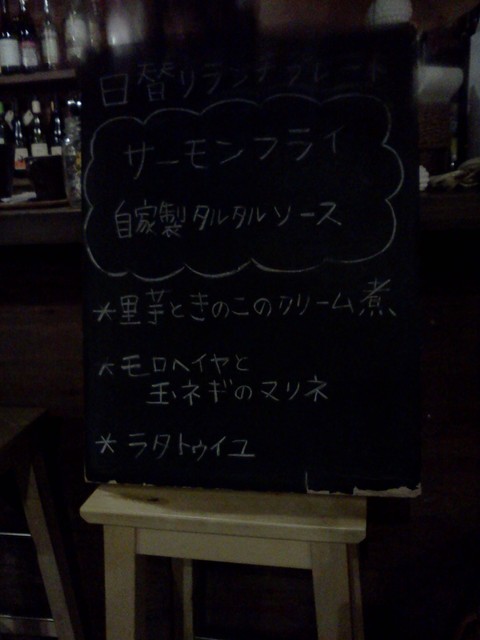 日替りランチプレート
サーモンフライ
自家製タルタルソース
*里芋ときのこのクリーム煮
*モロヘイヤと
玉ネギのマリネ
*ラタトゥイユ